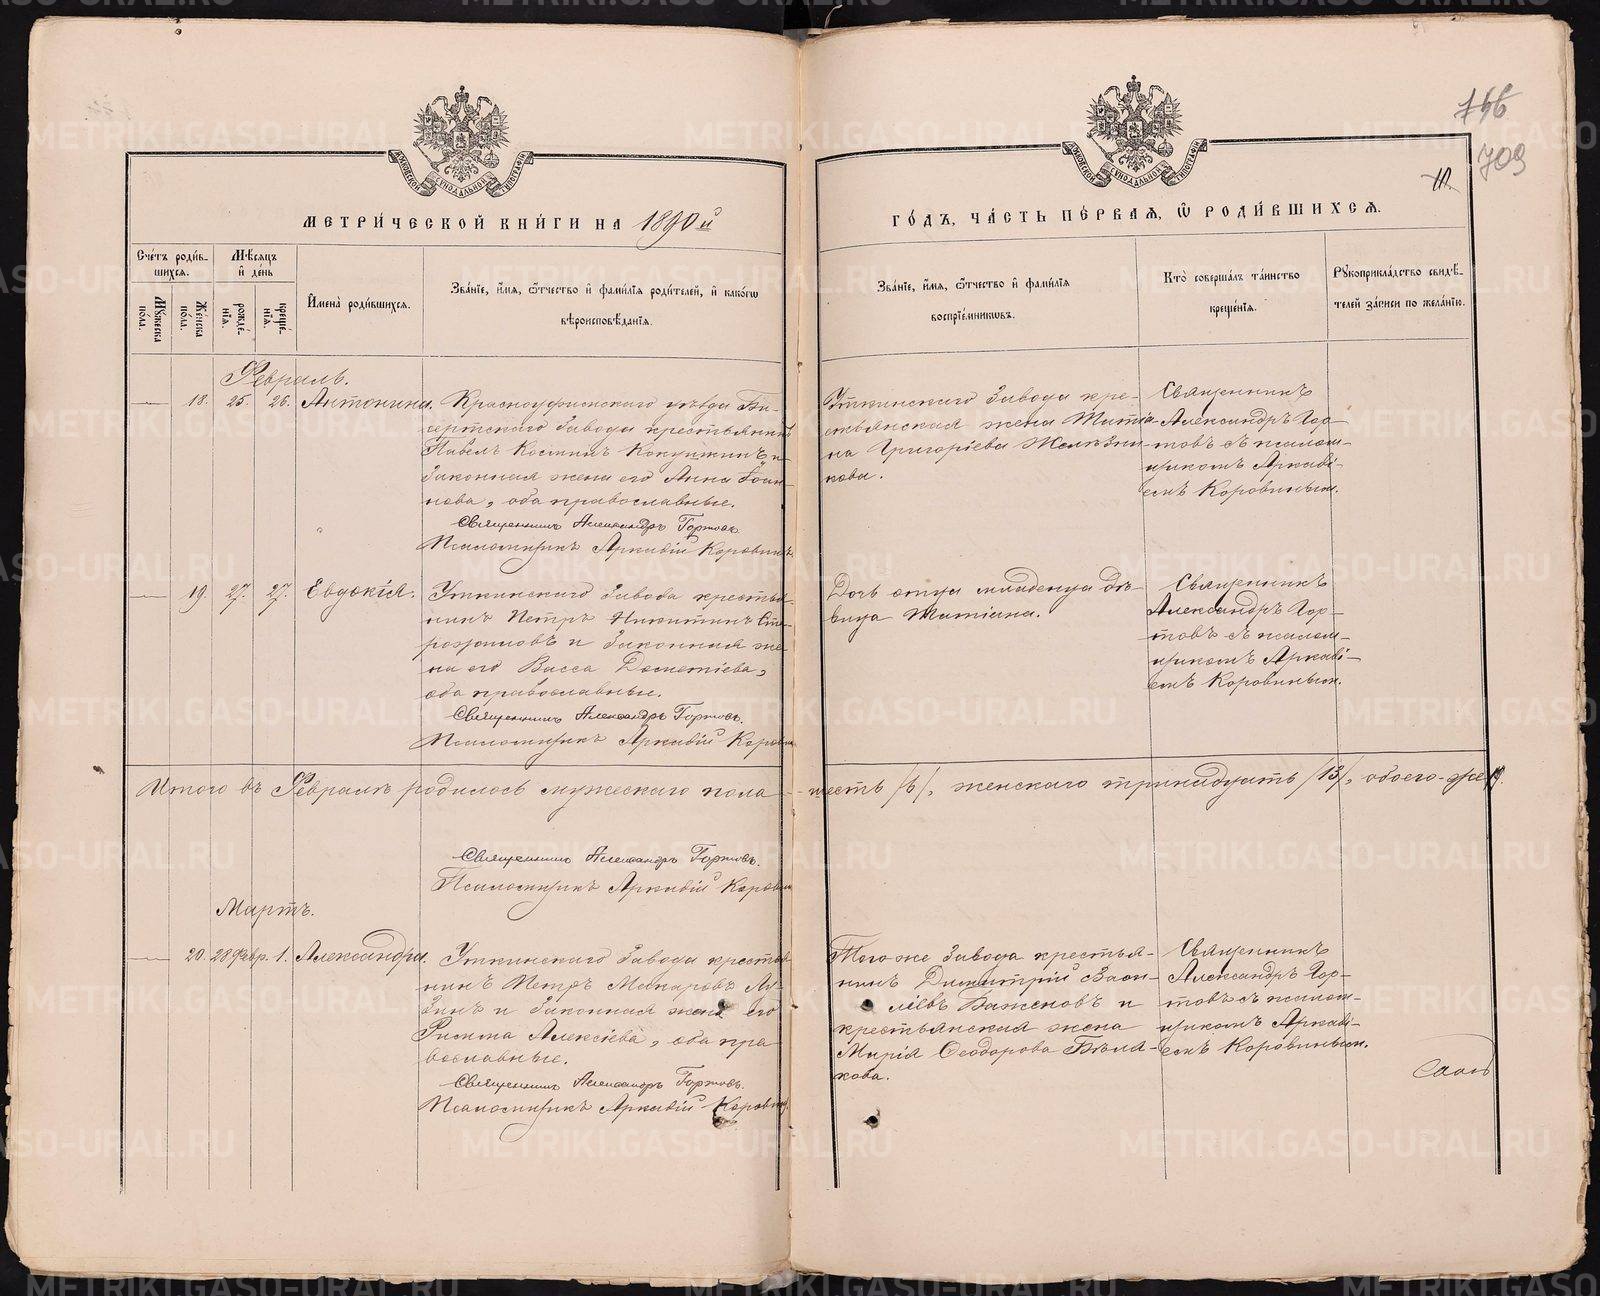 746
709
11.
МЕТРИ́ЧЕСКОЙ КНИ́ГИ НА 1890й
ГО́ДЪ, ЧА́СТЬ ПЕ́РВАЯ, Ѽ РОДИ́ВШИХСЯ.
Сче́тъ роди́в-
шихся.
Мѣ́сяцъ
и҆ де́нь
Мꙋ́жеска по́ла.
Же́нска по́ла.
рожде́-
нїя.
креще́-
нїя.
И҆мена̀ роди́вшихся.
Зва́нїе, и҆́мя, ѻ҆́тчество и҆ фами́лїя роди́телей, и҆ како́гѡ
вѣроисповѣ́данїя.
Зва́нїе, и҆́мя, ѻ҆́тчество и҆ фами́лїя
воспрїе́мникѡвъ.
Кто̀ соверша́лъ та́инство
креще́нїя.
Рꙋкоприкла́дство свидѣ́-
телей за́писи по жела́нїю.
Февраль.
18. 25. 26. Антонина.
Красноуфимскаго уѣзда Би-
сертскаго завода крестьянинъ
Павелъ Косминъ и
законная жена его Анна Іоан-
нова, оба православные.
Священникъ Александръ Гортовъ
Псаломщикъ Аркадій Коровинъ
Уткинскаго завода кре-
стьянская жена Татіа-
на Григоріева Желѣзни-
кова.
Священникъ
Александръ Гор-
товъ съ псалом-
щикомъ Аркаді-
емъ Коровинымъ.
19. 27. 27. Евдокія.
Уткинскаго завода крестья-
нинъ Петръ Никитинъ Сто-
рожиловъ и законная же-
на его Васса Дометіева,
оба православные.
Священникъ Александръ Гортовъ.
Псаломщикъ Аркадій Коровинъ
Дочь отца младенца дѣ-
вица Татіана.
Священникъ
Александръ Гор-
товъ съ псалом-
щикомъ Аркаді-
емъ Коровинымъ.
Итого въ Февралѣ родилось мужескаго пола шесть /6/, женскаго тринадцать /13/, обоего-же 19.
Священникъ Александръ Гортовъ.
Псаломщикъ Аркадій Коровинъ
Мартъ.
20. 28 Февр. 1. Александра.
Уткинскаго завода крестья-
нинъ Петръ Макаровъ Ли-
зинъ и законная жена его
Римма Алексіева, оба пра-
вославные.
Священникъ Александръ Гортовъ.
Псаломщикъ Аркадій Коровинъ
Того же завода крестья-
нинъ Димитрій
Баженовъ и
крестьянская жена
Марія Ѳеодорова Бѣла-
кова.
Священникъ
Александръ Гор-
товъ съ псалом-
щикомъ Аркаді-
емъ Коровинымъ.
METRIKI.GASO-URAL.RU